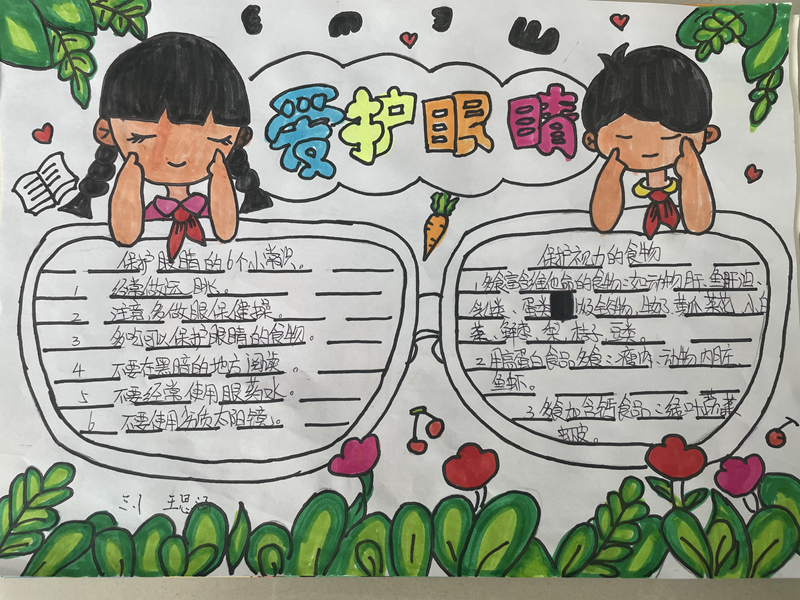 爱护眼睛
保护眼睛的6个小常识。
1 经常做运眺。
2 注意多做眼保健操。
3 多吃可以保护眼睛的食物。
4 不要在黑暗的地方阅读。
5 不要经常使用眼药水。
6 不要使用劣质太阳镜。
保护视力的食物
1.多食富含维他命的食物:如动物肝、鱼肝油、
乳类、蛋类
菜、鲜枣、梨、桔子、豆类。
2.用高蛋白食品多食:瘦肉、动物内脏、
鱼虾。
3.多食加含钙食品:绿叶蔬菜、
虾皮。
三.1 王思涵